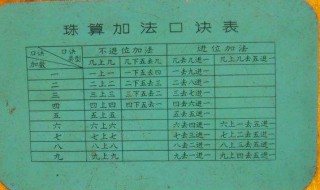 珠算加法口决表
口诀 口诀类型 不进位加法 进位加法
加数 几上几 几下五去几 几去几进一 几上几去五进一
一 一上一 一下五去四 一去九进一
二 二上二 二下五去三 二去八进一
三 三上三 三下五去二 三去七进一
四 四上四 四下五去一 四去六进一
五 五上五 五去五进一
六 六上六 六去四进一 六上一去五进一
七 七上七 七去三进一 七上二去五进一
八 八上八 八去二进一 八上三去五进一
九 九上九 九去一进一 九上四去五进一